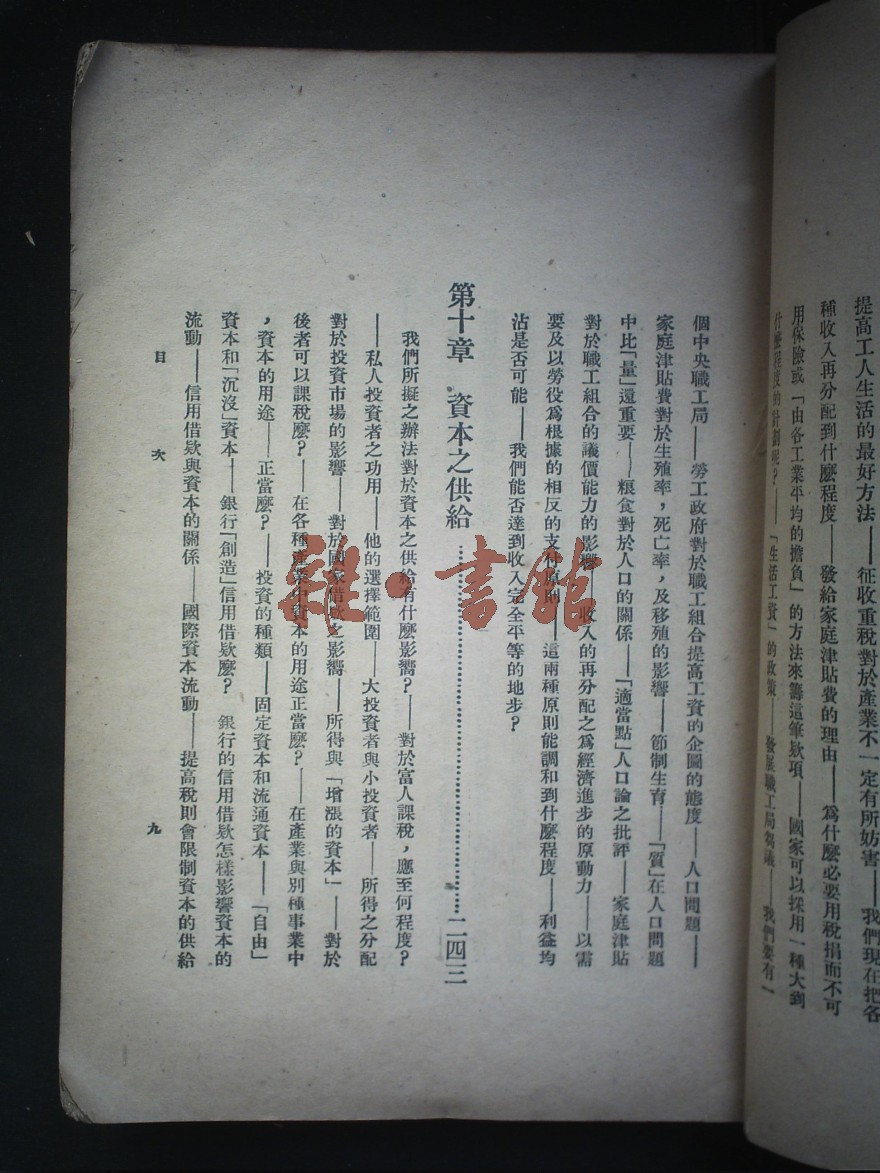 提高工人生活的最好方法——征收重稅對於產業不一定有所妨害——我們現在把各
種收入再分配到什麼程度——發給家庭津貼費的理由——爲什麼必要用稅捐而不可
用保險或「由各工業平均的擔負」的方法來籌這筆欵項——國家可以採用一種大到
什麼程度的計劃呢？——「生活工資」的政策——發展職工局芻議——我們要有一
個中央職工局——勞工政府對於職工組合提高工資的企圖的態度——人口問題——
家庭津貼費對於生殖率，死亡率，及移殖的影響——節制生育——「質」在人口問題
中比「量」還重要——粮食對於人口的關係——「適當點」人口論之批評——家庭津貼
對於職工組合的議價能力的影響——收入的再分配之爲經濟進步的原動力——以需
要及以勞役爲根據的相反的支付原則——這兩種原則能調和到什麼程度——利益均
沾是否可能——我們能否達到收入完全平等的地步？
第十章　資本之供給……………………………二四三
我們所擬之辦法對於資本之供給有什麼影響？——對於富人課稅，應至何程度？
——私人投資者之功用——他的選擇範圍——大投資者與小投資者——所得之分配
對於投資市場的影響——對於國家借欵之影響——所得與「增漲的資本」——對於
後者可以課稅麼？——在各種產業中資本的用途正當麼？——在產業與別種事業中
，資本的用途——正當麼？——投資的種類——固定資本和流通資本——「自由」
資本和「沉沒」資本——銀行「創造」信用借欵麼？　銀行的信用借欵怎樣影響資本的
流動——信用借欵與資本的關係——國際資本流動——提高稅則會限制資本的供給
目　次　九
雜·書館